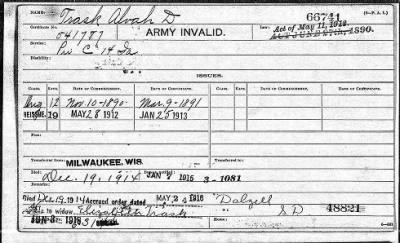 NAME: Trask Alvah D 66744 (3-P.A.I.)
Certificate No. 841787 ARMY INVALID. Act of May 11, 1912.
ACT JUNE 27th, 1890.
Service: Pvt C 14 Ia.
ISSUES.
CLASS. RATE. DATE OF COMMENCEMENT. DATE OF CERTIFICATE. CLASS. RATE. DATE OF COMMENCEMENT. DATE OF CERTIFICATE.
12 Nov. 10-1890 Mar. 9-1891
REISSUE 19 MAY 28 1912 JAN 25 1913
From
Transferred from MILWAUKEE, WIS. Transferred to
Dec. 19, 1914 JAN 1915 3-1081
Died Dec. 19, 1914 Accrued order dated MAY 24 1916 Dalzell
to widow, Elizabeth Trask S D 48821
JUN 3 1916